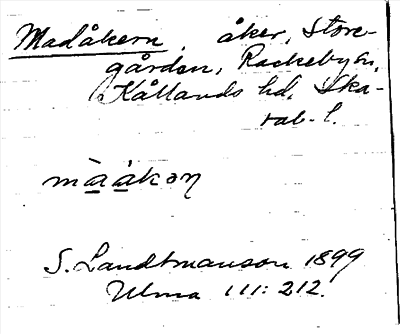 Madåkern, åker, Store-
gården, Rackeby sn,
Kållands hd, Ska-
rab. l.
må̱å̱kəņ
S. Landtmanson 1899
Ulma 111: 212.